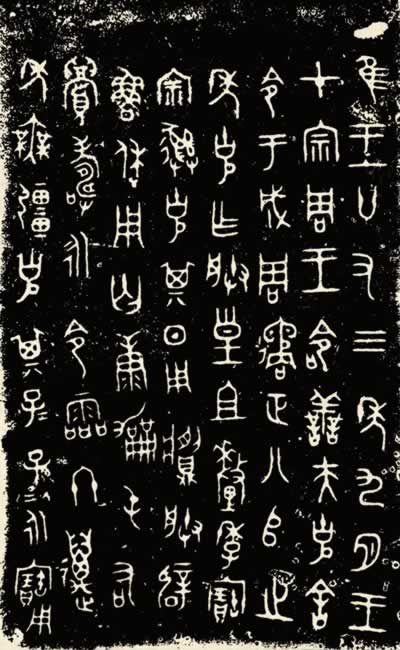 隹王廿又三年九月王
才宗周王命善夫克舍
令于成周遹正八𠂤之
年克乍朕皇且釐季寶
宗彝克其日用䵼朕辟
魯休用匄康屯右
眉壽永令霝冬萬
年無疆克其子=孫=永寶用